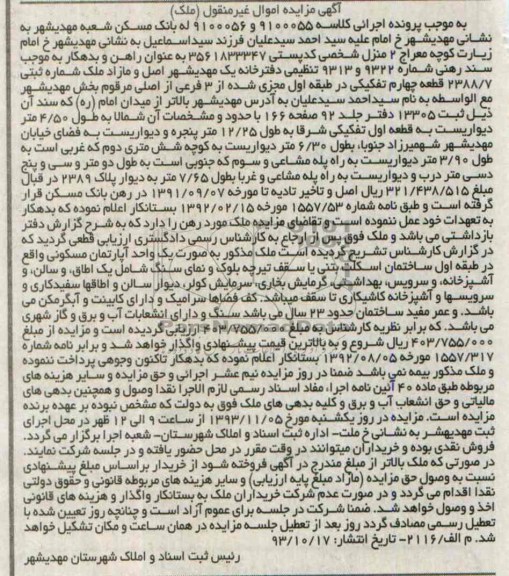 آگهی مزایده اموال غیرمنقول (ملک)
به موجب پرونده اجرائی کلاسه ۹۱۰۰۰۵۵ و ۹۱۰۰۰۵۶ له بانک مسکن شعبه مهدیشهر به
نشانی مهدیشهر خ امام علیه سید احمد سیدعلیان فرزند سیداسماعیل به نشانی مهدیشهر خ امام
زیارت کوچه معراج ۲ منزل شخصی کدپستی ۳۵۶۱۸۳۳۳۴۷ به عنوان راهن و بدهکار به موجب
سند رهنی شماره ۹۳۲۲ و ۹۳۱۳ تنظیمی دفترخانه یک مهدیشهر اصل و مازاد ملک شماره ثبتی
۲۳۸۸/۷ قطعه چهارم تفکیکی در طبقه اول مجزی شده از ۳ فرعی از اصلی مرقوم بخش مهدیشهر
مع الواسطه به نام سیداحمد سیدعلیان به آدرس مهدیشهر بالاتر از میدان امام (ره) که سند آن
ذیل ثبت ۱۳۳۰۵ دفتر جلد ۹۲ صفحه ۱۶۶ با حدود و مشخصات آن شمالا به طول ۴/۵۰ متر
دیواریست به قطعه اول تفکیکی شرقا به طول ۱۲/۲۵ متر پنجره و دیواریست به فضای خیابان
مهدیشهر شهمیرزاد جنوبا، بطول ۶/۳۰ متر دیواریست به کوچه شش متری دوم که غربی است به
طول ۳/۹۰ متر دیواریست به راه پله مشاعی و سوم که جنوبی است به طول دو متر و سی و پنج
دسی متر درب و دیواریست به راه پله مشاعی و غربا بطول ۷/۶۵ متر به دیوار پلاک ۲۳۸۹ در قبال
مبلغ ۳۲۱/۴۳۸/۵۱۵ ریال اصل و تأخیر تادیه تا مورخه ۱۳۹۱/۰۹/۰۷ در رهن بانک مسکن قرار
گرفته است و طبق نامه شماره ۱۵۵۷/۵۳ مورخه ۱۳۹۲/۰۲/۱۵ بستانکار اعلام نموده که بدهکار
به تعهدات خود عمل ننموده است و تقاضای مزایده ملک مورد رهن را دارد که به شرح گزارش دفتر
بازداشتی می باشد و ملک فوق پس از ارجاع به کارشناس رسمی دادگستری ارزیابی قطعی گردید که
در گزارش کارشناس تشریح گردیده است ملک مذکور به صورت یک واحد آپارتمان مسکونی واقع
در طبقه اول ساختمان اسکلت بتنی با سقف تیرچه بلوک و نمای سنگ شامل یک اطاق، و سالن، و
آشپزخانه، و سرویس، بهداشتی، گرمایش بخاری، سرمایش کولر، دیوار سالن و اطاقها سفیدکاری و
سرویسها و آشپزخانه کاشیکاری تا سقف میباشد. کف فضاها سرامیک و دارای کابینت و آبگرمکن می
باشد. و عمر مفید ساختمان حدود ۲۳ سال می باشد سنگ و دارای انشعابات آب و برق و گاز شهری
می باشد. که برابر نظریه کارشناس به مبلغ ۴۰۳/۷۵۵/۰۰۰ ارزیابی گردیده است و مزایده از مبلغ
۴۰۳/۷۵۵/۰۰۰ ریال شروع و به بالاترین قیمت پیشنهادی واگذار خواهد شد و برابر نامه شماره
۱۵۵۷/۳۱۷ مورخه ۱۳۹۲/۰۸/۰۵ بستانکار اعلام نموده که بدهکار تاکنون وجوهی پرداخت ننموده
و ملک مذکور بیمه نمی باشد ضمنا در روز مزایده نیم عشر اجرائی و حق مزایده و سایر هزینه های
مربوطه طبق ماده ۴۰ آئین نامه اجرا، مفاد اسناد رسمی لازم الاجرا نقدا وصول و همچنین بدهی های
مالیاتی و حق انشعاب آب و برق و کلیه بدهی های ملک فوق به دولت که مشخص نبوده بر عهده برنده
مزایده است. مزایده در روز یکشنبه مورخ ۱۳۹۳/۱۱/۰۵ از ساعت ۹ الی ۱۲ ظهر در محل اجرای
ثبت مهدیهشر به نشانی خ ملت- اداره ثبت اسناد و املاک شهرستان- شعبه اجرا برگزار می گردد.
فروش نقدی بوده و خریداران میتوانند در وقت مقرر در محل حضور یافته و در جلسه شرکت نمایند.
در صورتی که ملک بالاتر از مبلغ مندرج در آگهی فروخته شود از خریدار براساس مبلغ پیشنهادی
نسبت به وصول حق مزایده (مازاد مبلغ پایه ارزیابی) و سایر هزینه های مربوطه قانونی و حقوق دولتی
نقدا اقدام می گردد و در صورت عدم شرکت خریداران ملک به بستانکار واگذار و هزینه های قانونی
اخذ و وصول خواهد شد. ضمنا شرکت در جلسه برای عموم آزاد است و چنانچه روز تعیین شده با
تعطیل رسمی مصادف گردد روز بعد از تعطیل جلسه مزایده در همان ساعت و مکان تشکیل خواهد
شد. م الف/۲۱۱۶- تاریخ انتشار: ۹۳/۱۰/۱۷
رئیس ثبت اسناد و املاک شهرستان مهدیشهر